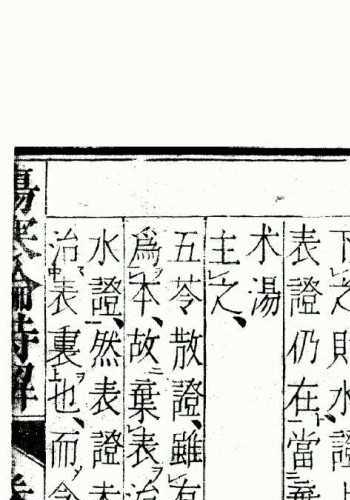 下之則水
表證仍在當棄
朮湯
主之、
五苓散證、雖有
爲本、故棄表治
水證、然表證未
治表裏也、而
傷寒論特解